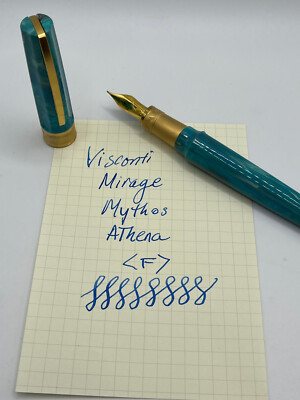 Visconti
Mirage
Mythos
AThena
<F>